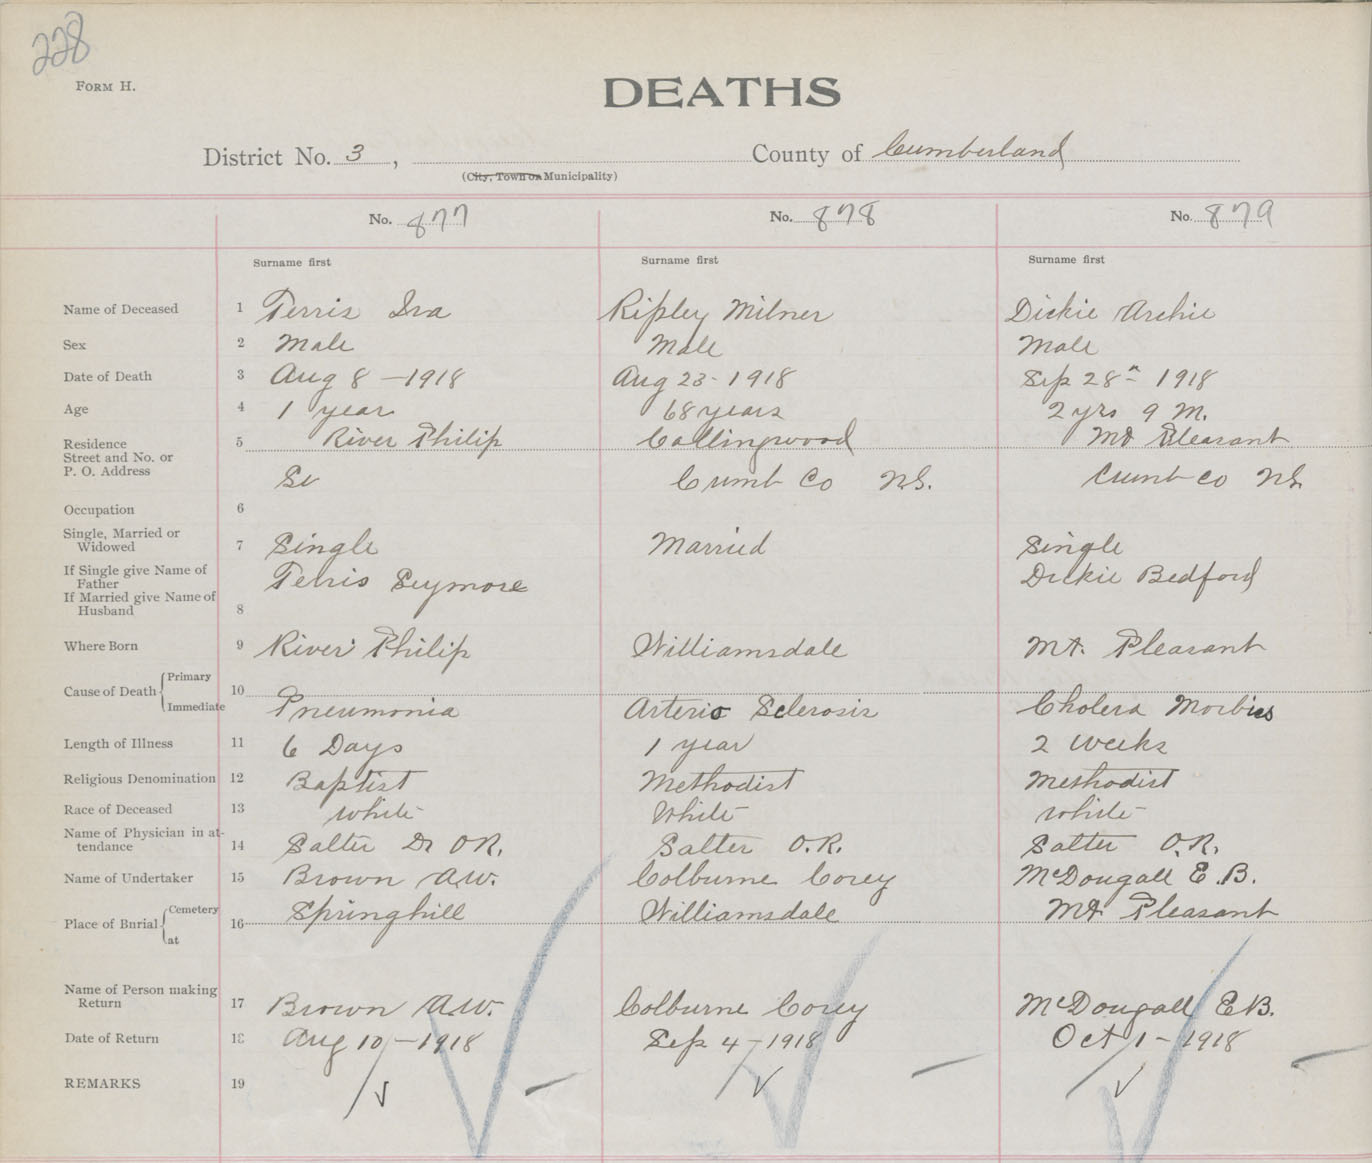 228
FORM H.
DEATHS
District No. 3, County of Cumberland
(City, Town or Municipality)
No. 877 No. 878 No. 879
Surname first Surname first Surname first
Name of Deceased 1 Terris Ira Ripley Milner Dickie Archie
Sex 2 Male Male Male
Date of Death 3 Aug 8 - 1918 Aug 23 - 1918 Sep 28" 1918
Age 4 1 year 68 years 2 yrs 9 M.
Residence 5 River Philip Collingwood Mt Pleasant
Street and No. or
P. O. Address Cumb Co N.S. Cumb Co N.S.
Occupation 6
Single, Married or
Widowed 7 Single Married Single
If Single give Name of
Father Terris Seymore Dickie Bedford
If Married give Name of
Husband 8
Where Born 9 River Philip Williamsdale Mt. Pleasant
Cause of Death Primary 10
Immediate Pneumonia Arterio Sclerosis Cholera Morbies
Length of Illness 11 6 Days 1 year 2 weeks
Religious Denomination 12 Baptist Methodist Methodist
Race of Deceased 13 white White white
Name of Physician in at-
tendance 14 Salter Dr O.R. Salter O.R. Salter O.R.
Name of Undertaker 15 Brown A.W. Colburne Corey McDougall E.B.
Place of Burial Cemetery 16 Springhill Williamsdale Mt Pleasant
at
Name of Person making
Return 17 Brown A.W. Colburne Corey McDougall E.B.
Date of Return 18 Aug 10 - 1918 Sep 4 - 1918 Oct 1 - 1918
REMARKS 19